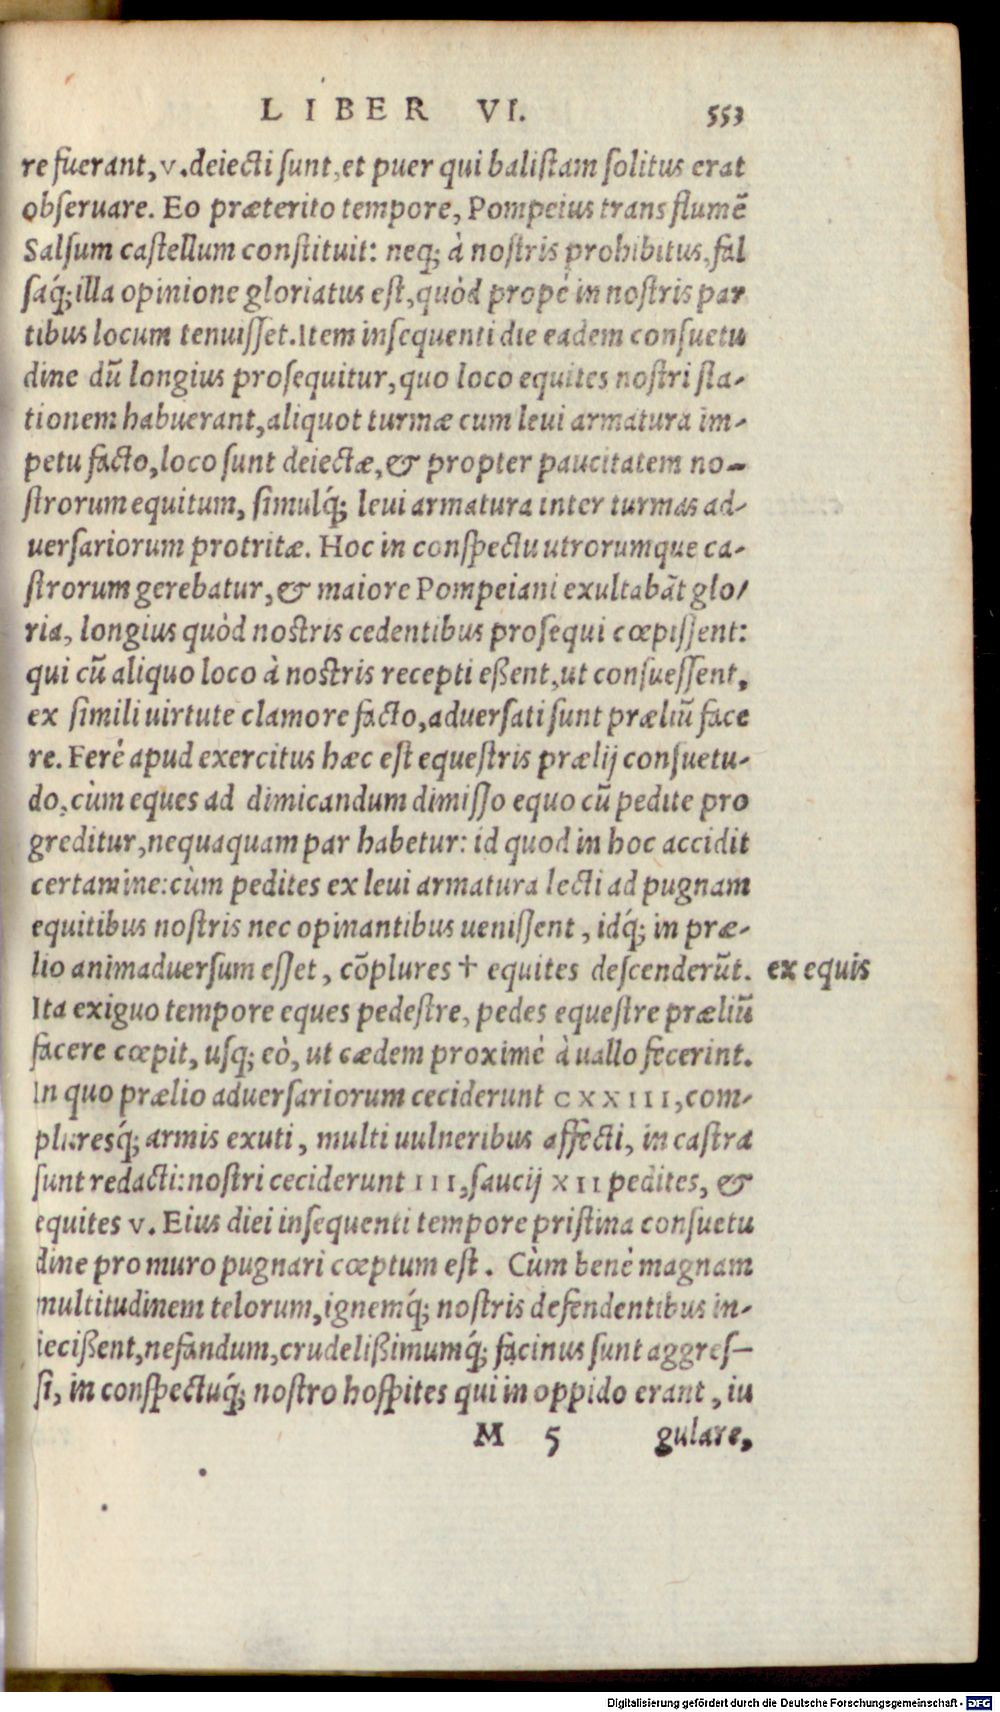 LIBER VI. 553
re fuerant, v. deiecti sunt, et puer qui balistam solitus erat
obseruare. Eo præterito tempore, Pompeius trans flumē
Salsum castellum constituit: neq; à nostris prohibitus, fal
saq́; illa opinione gloriatus est, quòd propè in nostris par
tibus locum tenuisset. Item insequenti die eadem consuetu
dine dū longius prosequitur, quo loco equites nostri sta-
tionem habuerant, aliquot turmæ cum leui armatura im-
petu facto, loco sunt deiectæ, & propter paucitatem no-
strorum equitum, simulq́; leui armatura inter turmas ad-
uersariorum protritæ. Hoc in conspectu utrorumque ca-
strorum gerebatur, & maiore Pompeiani exultabāt glo/
ria, longius quòd nostris cedentibus prosequi cœpissent:
qui cū aliquo loco à nostris recepti eßent, ut consuessent,
ex simili uirtute clamore facto, aduersati sunt præliū face
re. Ferè apud exercitus hæc est equestris prælij consuetu-
do, cùm eques ad dimicandum dimisso equo cū pedite pro
greditur, nequaquam par habetur: id quod in hoc accidit
certamine: cùm pedites ex leui armatura lecti ad pugnam
equitibus nostris nec opinantibus uenissent, idq́; in præ-
lio animaduersum esset, cōplures † equites descenderūt. ex equis
Ita exiguo tempore eques pedestre, pedes equestre præliū
facere cœpit, usq; eò, ut cædem proximè à uallo fecerint.
In quo prælio aduersariorum ceciderunt CXXIII, com-
pluresq́; armis exuti, multi uulneribus affecti, in castra
sunt redacti: nostri ceciderunt III, saucij XII pedites, &
equites v. Eius diei insequenti tempore pristina consuetu
dine pro muro pugnari cœptum est. Cùm benè magnam
multitudinem telorum, ignemq́; nostris defendentibus in-
iecißent, nefandum, crudelißimumq́; facinus sunt aggres-
si, in conspectuq́; nostro hospites qui in oppido erant, iu
M 5 gulare,
Digitalisierung gefördert durch die Deutsche Forschungsgemeinschaft - DFG